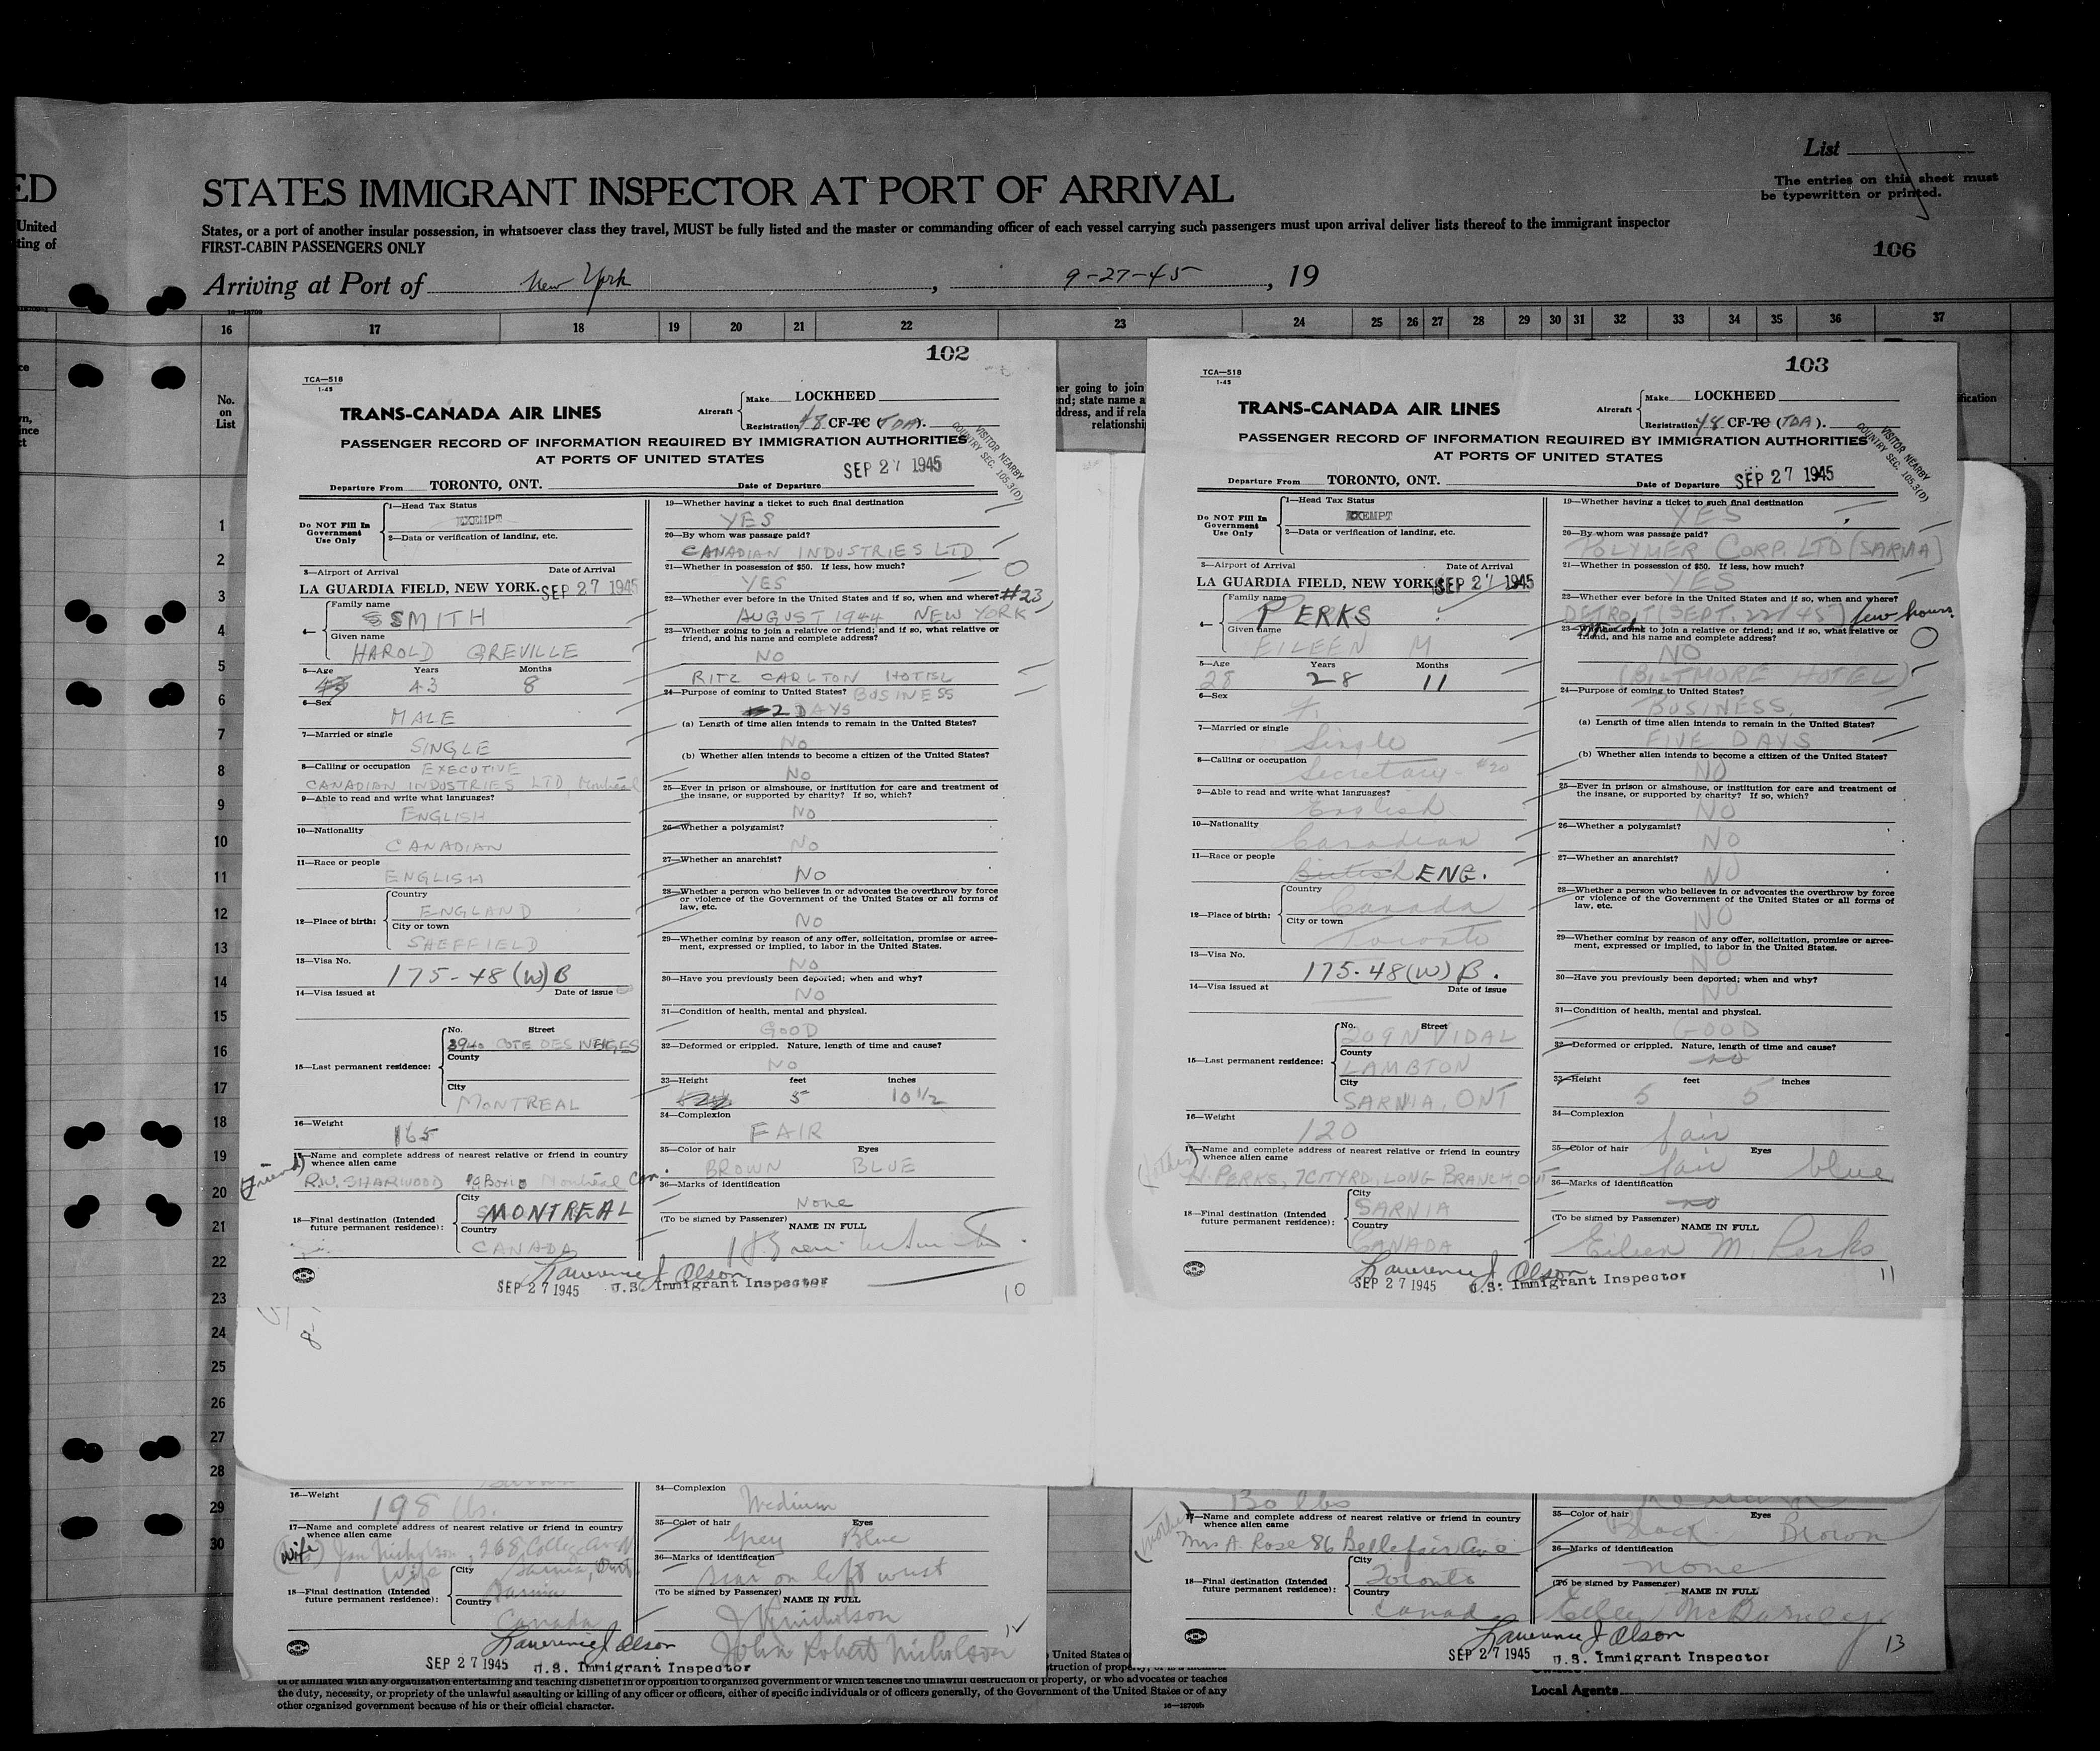 ED
United
ting of
STATES IMMIGRANT INSPECTOR AT PORT OF ARRIVAL
List
The entries on this sheet must
be typewritten or printed.
States, or a port of another insular possession, in whatsoever class they travel, MUST be fully listed and the master or commanding officer of each vessel carrying such passengers must upon arrival deliver lists thereof to the immigrant inspector
FIRST-CABIN PASSENGERS ONLY
106
Arriving at Port of New York, 9-27-45, 19
16 17 18 19 20 21 22 23 24 25 26 27 28 29 30 31 32 33 34 35 36 37
No.
on
List
1
2
3
4
5
6
7
8
9
10
11
12
13
14
15
16
17
18
19
20
21
22
23
24
25
26
27
28
29
30
102
TCA—518
1-45
TRANS-CANADA AIR LINES
Aircraft
Make LOCKHEED
Registration 48 CF-TC (TDA).
PASSENGER RECORD OF INFORMATION REQUIRED BY IMMIGRATION AUTHORITIES
AT PORTS OF UNITED STATES
VISITOR NEARBY
COUNTRY SEC. 105.3(D)
Departure From TORONTO, ONT. Date of Departure SEP 27 1945
Do NOT Fill In
Government
Use Only
1—Head Tax Status
EXEMPT
2—Data or verification of landing, etc.
3—Airport of Arrival Date of Arrival
LA GUARDIA FIELD, NEW YORK. SEP 27 1945
4—
Family name
SMITH
Given name
HAROLD GREVILLE
5—Age Years Months
43 43 8
6—Sex
MALE
7—Married or single
SINGLE
8—Calling or occupation EXECUTIVE
CANADIAN INDUSTRIES LTD, Montreal
9—Able to read and write what languages?
ENGLISH
10—Nationality
CANADIAN
11—Race or people
ENGLISH
12—Place of birth:
Country
ENGLAND
City or town
SHEFFIELD
13—Visa No.
175-48(W)B
14—Visa issued at Date of issue
15—Last permanent residence:
No. Street
3940 COTE DES NEIGES
County
City
MONTREAL
16—Weight
165
17—Name and complete address of nearest relative or friend in country
whence alien came
(Friend) R.W. SHARWOOD P.O Box 10 Montreal Can.
18—Final destination (Intended
future permanent residence):
City
MONTREAL
Country
CANADA
Lawrence J Olson
SEP 27 1945 U.S. Immigrant Inspector
19—Whether having a ticket to such final destination
YES
20—By whom was passage paid?
CANADIAN INDUSTRIES LTD
21—Whether in possession of $50. If less, how much?
YES
22—Whether ever before in the United States and if so, when and where? #23
AUGUST 1944 NEW YORK
23—Whether going to join a relative or friend; and if so, what relative or
friend, and his name and complete address?
NO
RITZ CARLTON HOTEL
24—Purpose of coming to United States? BUSINESS
2 DAYS
(a) Length of time alien intends to remain in the United States?
NO
(b) Whether alien intends to become a citizen of the United States?
NO
25—Ever in prison or almshouse, or institution for care and treatment of
the insane, or supported by charity? If so, which?
NO
26—Whether a polygamist?
NO
27—Whether an anarchist?
NO
28—Whether a person who believes in or advocates the overthrow by force
or violence of the Government of the United States or all forms of
law, etc.
NO
29—Whether coming by reason of any offer, solicitation, promise or agree-
ment, expressed or implied, to labor in the United States.
NO
30—Have you previously been deported; when and why?
NO
31—Condition of health, mental and physical.
GOOD
32—Deformed or crippled. Nature, length of time and cause?
NO
33—Height feet inches
5 10 1/2
34—Complexion
FAIR
35—Color of hair Eyes
BROWN BLUE
36—Marks of identification
None
(To be signed by Passenger)
NAME IN FULL
10
103
TCA—518
1-45
TRANS-CANADA AIR LINES
Aircraft
Make LOCKHEED
Registration 48 CF-TC (TDA).
PASSENGER RECORD OF INFORMATION REQUIRED BY IMMIGRATION AUTHORITIES
AT PORTS OF UNITED STATES
VISITOR NEARBY
COUNTRY SEC. 105.3(D)
Departure From TORONTO, ONT. Date of Departure SEP 27 1945
Do NOT Fill In
Government
Use Only
1—Head Tax Status
EXEMPT
2—Data or verification of landing, etc.
3—Airport of Arrival Date of Arrival
LA GUARDIA FIELD, NEW YORK SEP 27 1945
4—
Family name
PERKS
Given name
EILEEN M
5—Age Years Months
28 28 11
6—Sex
F.
7—Married or single
Single
8—Calling or occupation
Secretary - #20
9—Able to read and write what languages?
English
10—Nationality
Canadian
11—Race or people
British ENG.
12—Place of birth:
Country
Canada
City or town
Toronto
13—Visa No.
175-48(W)B.
14—Visa issued at Date of issue
15—Last permanent residence:
No. Street
209 N VIDAL
County
LAMBTON
City
SARNIA, ONT
16—Weight
120
17—Name and complete address of nearest relative or friend in country
whence alien came
H. PERKS, 7 CITY RD, LONG BRANCH, ONT
18—Final destination (Intended
future permanent residence):
City
SARNIA
Country
CANADA
Lawrence J Olson
SEP 27 1945 U.S. Immigrant Inspector
19—Whether having a ticket to such final destination
YES
20—By whom was passage paid?
POLYMER CORP. LTD (SARNIA)
21—Whether in possession of $50. If less, how much?
YES
22—Whether ever before in the United States and if so, when and where?
DETROIT (SEPT. 22/45) few hours.
23—Whether going to join a relative or friend; and if so, what relative or
friend, and his name and complete address?
NO
(BILTMORE HOTEL)
24—Purpose of coming to United States?
BUSINESS.
(a) Length of time alien intends to remain in the United States?
FIVE DAYS
(b) Whether alien intends to become a citizen of the United States?
NO
25—Ever in prison or almshouse, or institution for care and treatment of
the insane, or supported by charity? If so, which?
NO
26—Whether a polygamist?
NO
27—Whether an anarchist?
NO
28—Whether a person who believes in or advocates the overthrow by force
or violence of the Government of the United States or all forms of
law, etc.
NO
29—Whether coming by reason of any offer, solicitation, promise or agree-
ment, expressed or implied, to labor in the United States.
NO
30—Have you previously been deported; when and why?
NO
31—Condition of health, mental and physical.
GOOD
32—Deformed or crippled. Nature, length of time and cause?
no
33—Height feet inches
5 5
34—Complexion
fair
35—Color of hair Eyes
fair blue
36—Marks of identification
no
(To be signed by Passenger)
NAME IN FULL
Eileen M. Perks
11
16—Weight
198 lbs.
17—Name and complete address of nearest relative or friend in country
whence alien came
(Wife) Jean Nicholson, 268 College Ave N
Wife Sarnia, Ont.
18—Final destination (Intended
future permanent residence):
City
Sarnia
Country
Canada
Lawrence J Olson
SEP 27 1945 U.S. Immigrant Inspector
34—Complexion
Medium
35—Color of hair Eyes
Grey Blue
36—Marks of identification
scar on left wrist
(To be signed by Passenger)
NAME IN FULL
J R Nicholson
John Robert Nicholson
130 lbs
17—Name and complete address of nearest relative or friend in country
whence alien came
(mother) Mrs A. Rose 86 Bellefair Ave
18—Final destination (Intended
future permanent residence):
City
Toronto
Country
Canada
Lawrence J Olson
SEP 27 1945 U.S. Immigrant Inspector
35—Color of hair Eyes
Black Brown
36—Marks of identification
none
(To be signed by Passenger)
NAME IN FULL
13
or affiliated with any organization entertaining and teaching disbelief in or opposition to organized government or which teaches the unlawful destruction of property, or who advocates or teaches
the duty, necessity, or propriety of the unlawful assaulting or killing of any officer or officers, either of specific individuals or of officers generally, of the Government of the United States or of any
other organized government because of his or their official character.
Local Agents